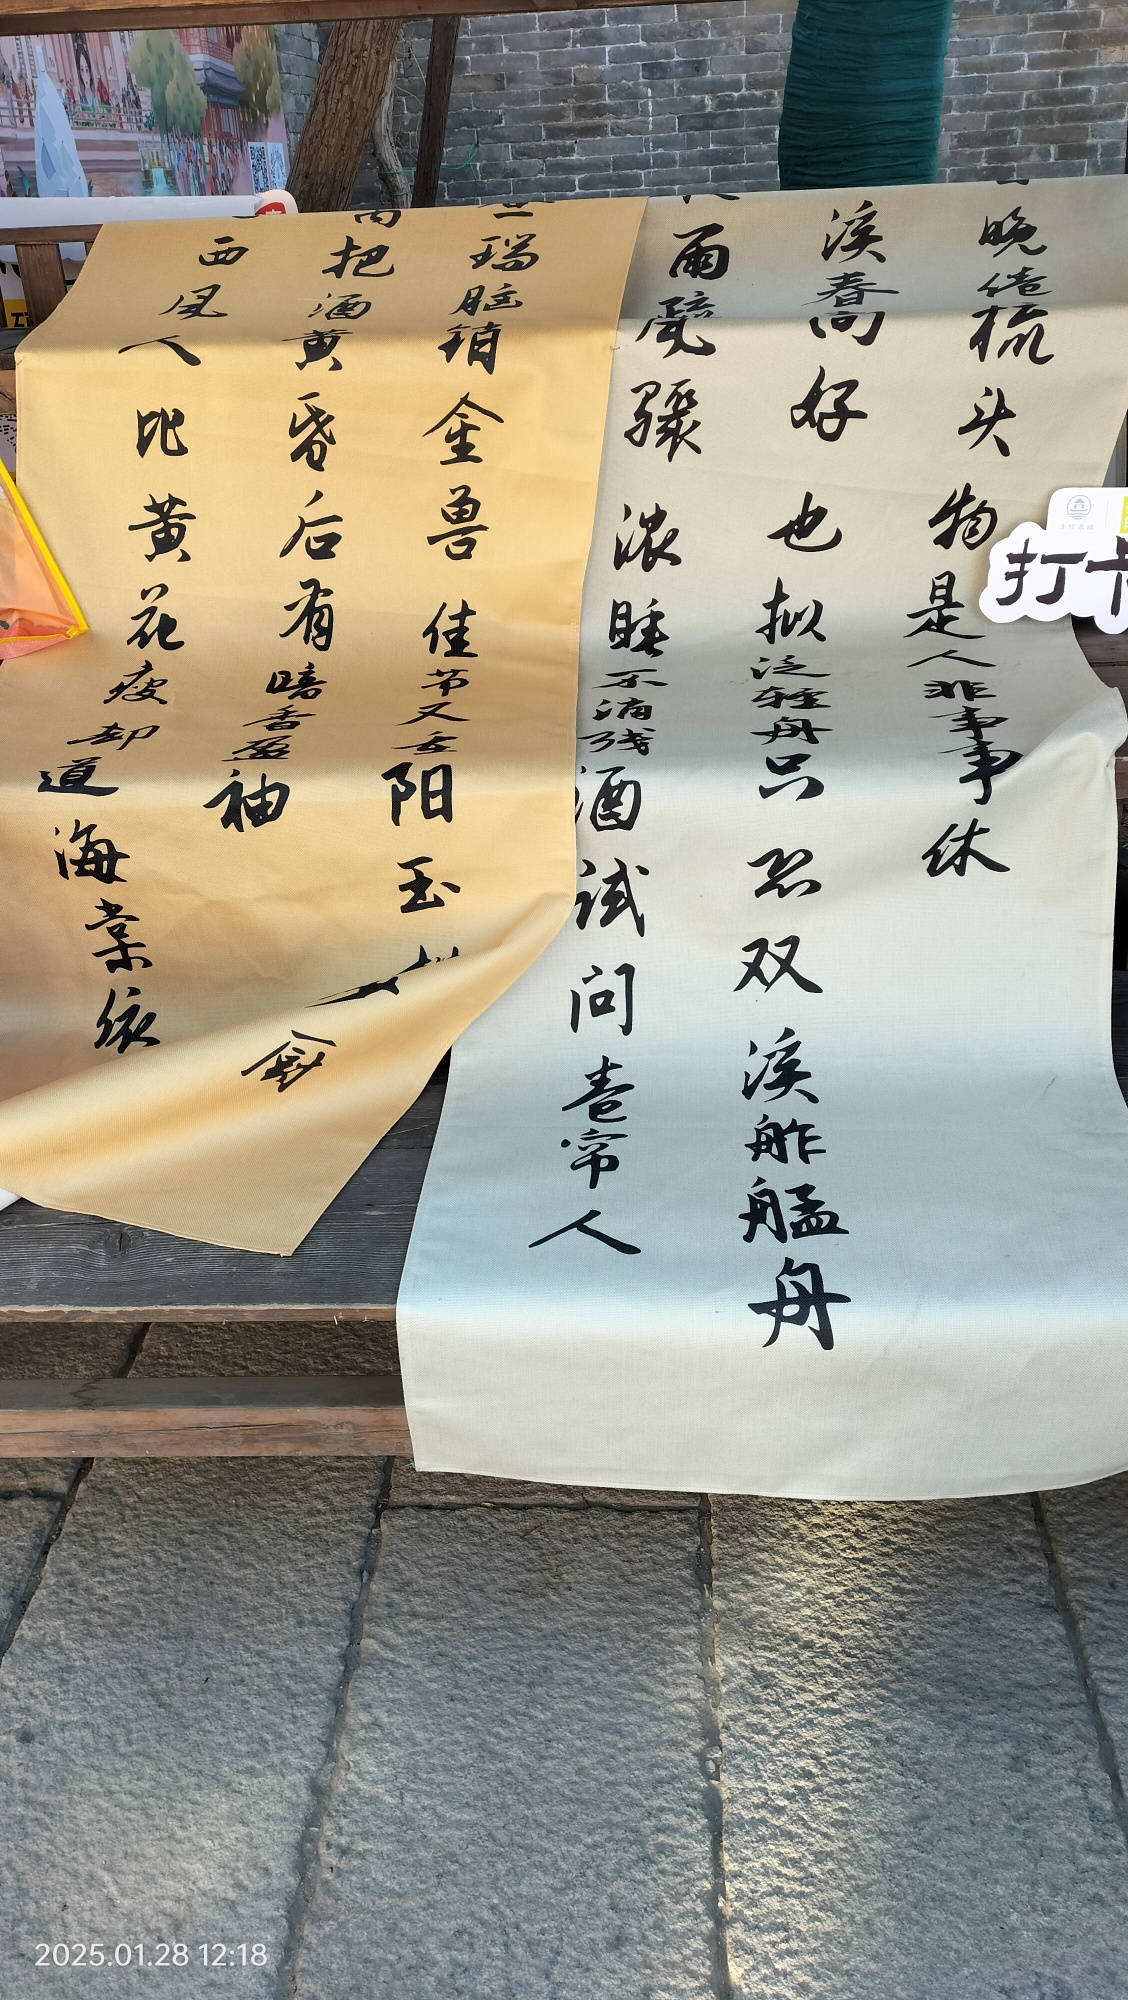 晚倦梳头物是人非事事休
溪春尚好也拟泛轻舟只恐双溪舴艋舟
雨疏风骤浓睡不消残酒试问卷帘人
瑞脑销金兽佳节又重阳玉
把酒黄昏后有暗香盈袖
西风人比黄花瘦却道海棠依
打卡
2025.01.28 12:18